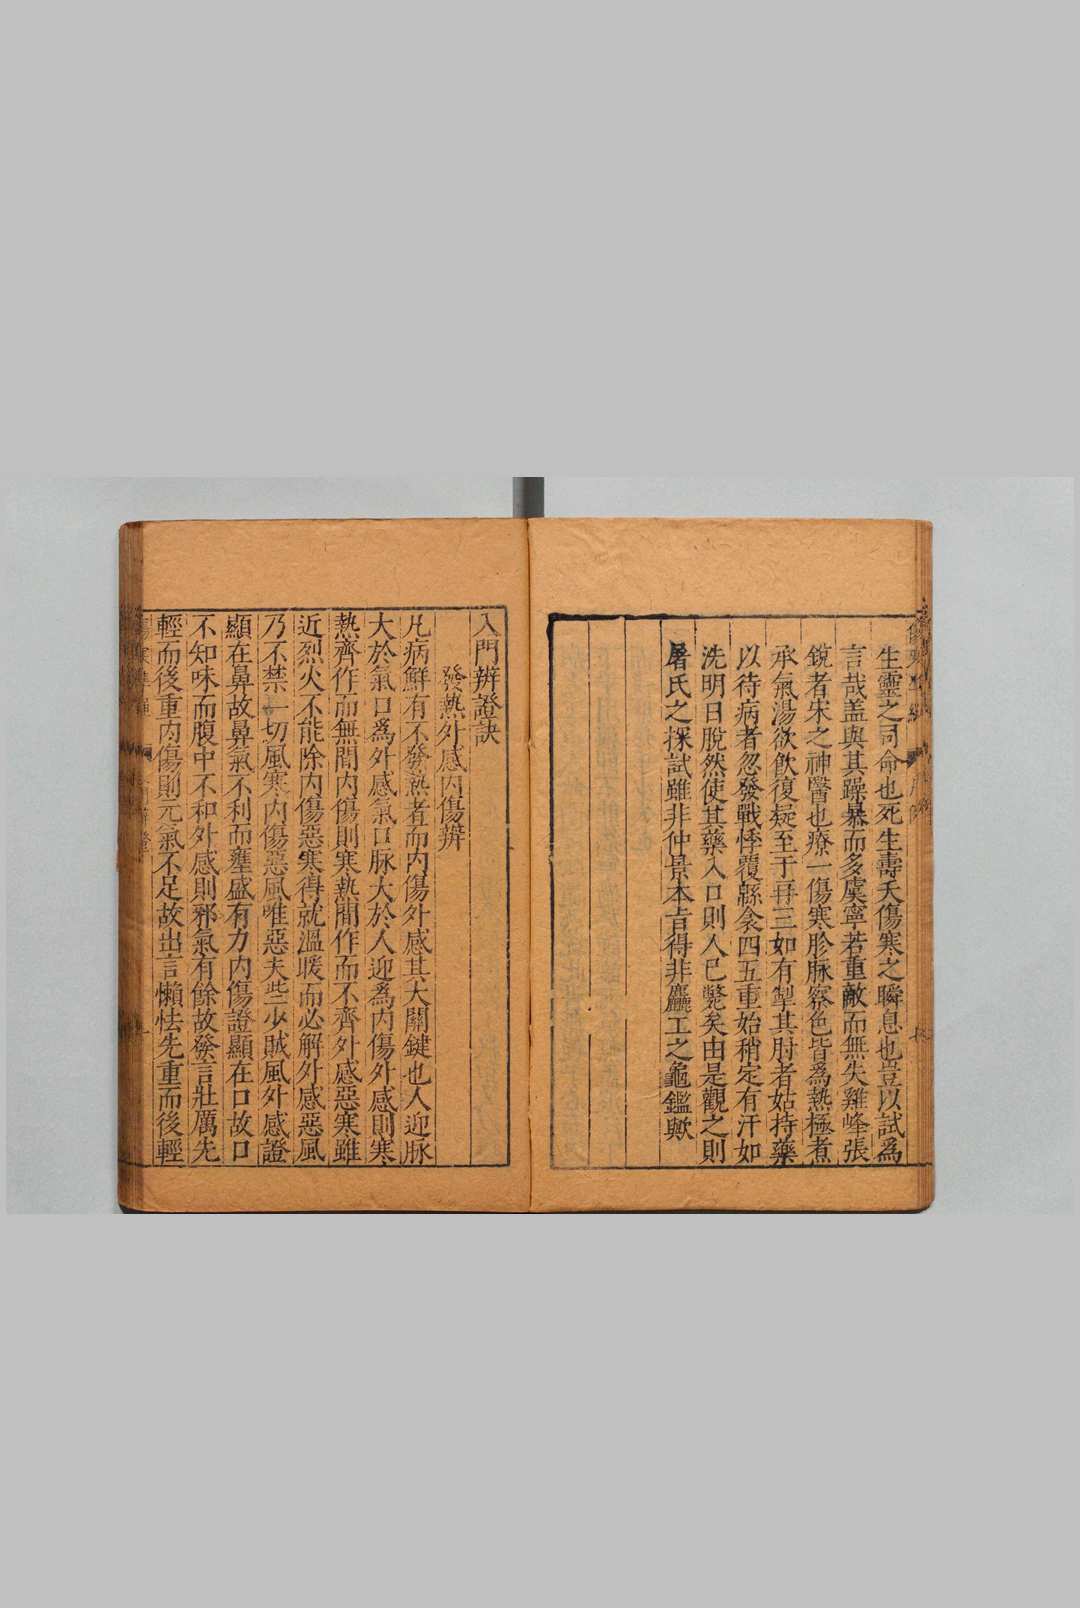 生靈之司命也死生壽夭傷寒之瞬息也豈以試爲
言哉盖與其躁暴而多虞寧若重敵而無失雞峰張
鋭者宋之神醫也療一傷寒胗脉察色皆爲熱極煮
承氣湯欲飲復疑至于再三如有掣其肘者姑持藥
以待病者忽發戰悸覆緜衾四五重始稍定有汗如
洗明日脫然使其藥入口則人已斃矣由是觀之則
屠氏之探試雖非仲景本旨得非麤工之龜鑑歟
入門辨證訣
發熱外感內傷辨
凡病鮮有不發熱者而內傷外感其大關鍵也人迎脉
大於氣口爲外感氣口脉大於人迎爲內傷外感則寒
熱齊作而無間內傷則寒熱間作而不齊外感惡寒雖
近烈火不能除內傷惡寒得就溫暖而必解外感惡風
乃不禁一切風寒內傷惡風唯惡夫些少賊風外感證
顯在鼻故鼻氣不利而壅盛有力內傷證顯在口故口
不知味而腹中不和外感則邪氣有餘故發言壯厲先
輕而後重內傷則元氣不足故出言懶怯先重而後輕